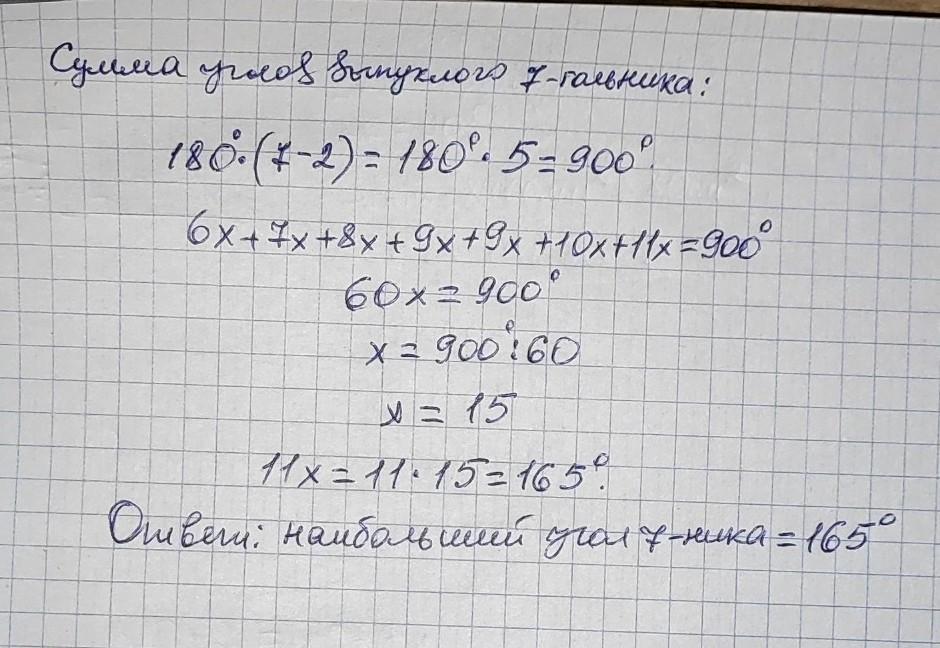 Сумма углов выпуклого 7-гольника:
180°·(7-2)=180°·5=900°.
6x+7x+8x+9x+9x+10x+11x=900°
60x=900°
x=900°:60
x=15
11x=11·15=165°.
Ответ: наибольший угол 7-ника=165°